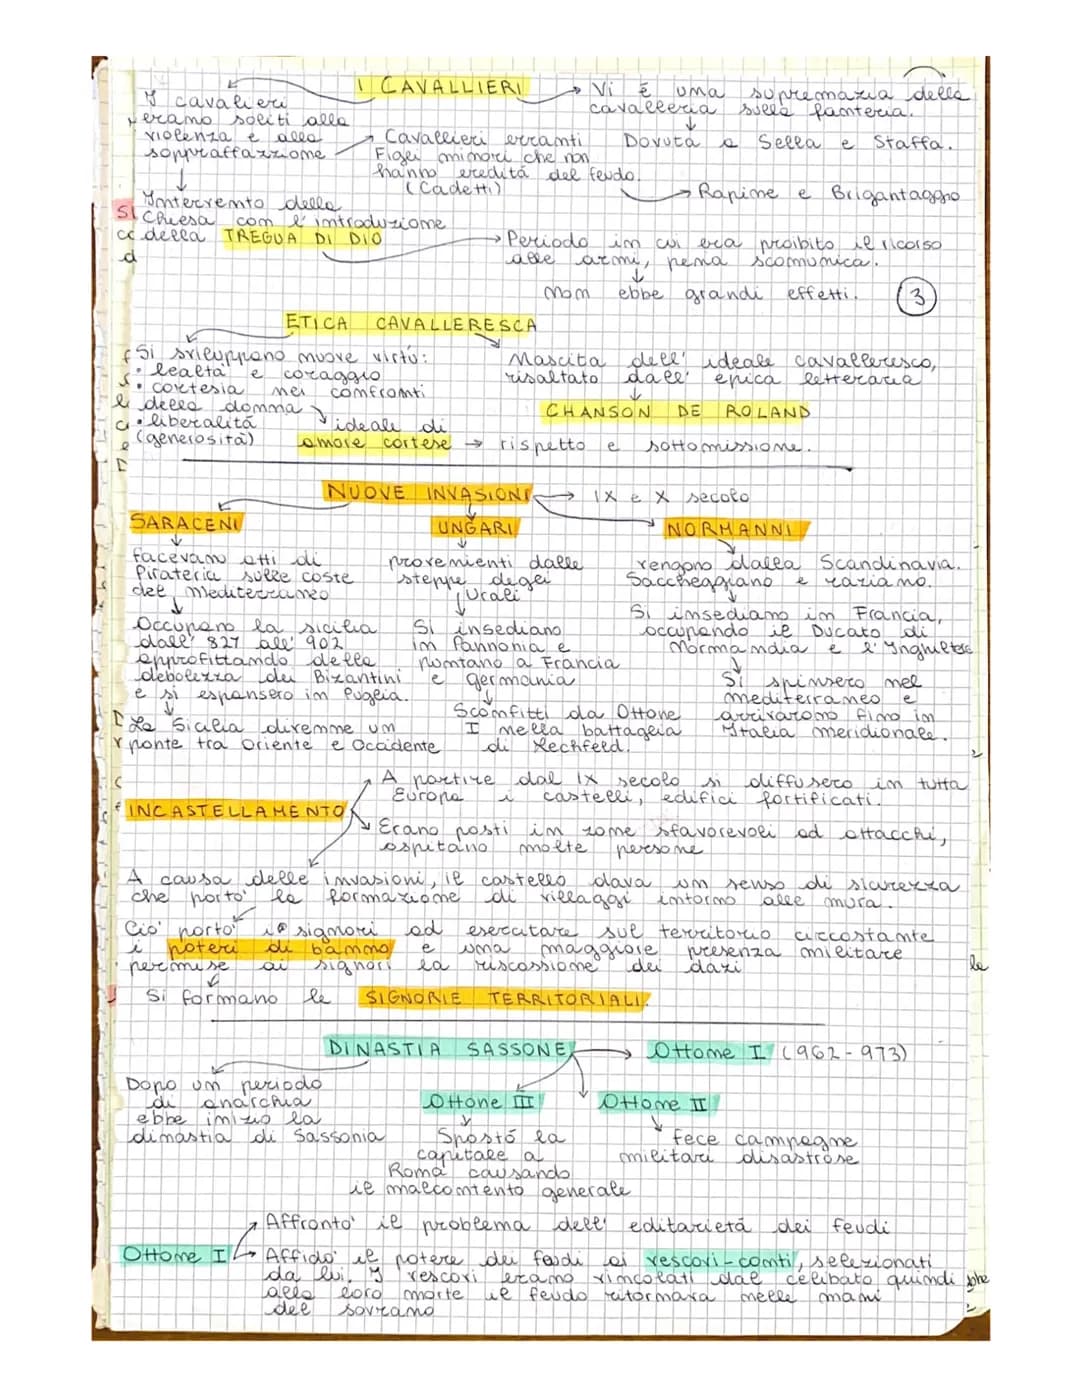 I CAVALLIERI
I cavalieri
erano soliti alla
violenza e alla
sopraffazzione
Vi è una supremazia della
cavalleria sulla fanteria.
Dovuta a Sella e Staffa.
Cavallieri erranti
Figli minori che non
hanno eredità del feudo.
(Cadetti)
Rapine e Brigantaggio
Intervento della
Chiesa con l'introduzione
della TREGUA DI DIO
Periodo in cui era proibito il ricorso
alle armi, pena scomunica.
Non ebbe grandi effetti.
3
ETICA CAVALLERESCA
Si sviluppano nuove virtù:
• lealtà e coraggio
• cortesia nei confronti
della donna
• liberalità
(generosità)
ideale di
amore cortese → rispetto e sottomissione.
Nascita dell'ideale cavalleresco,
risaltato dall'epica letteraria
CHANSON DE ROLAND
NUOVE INVASIONI → IX e X secolo
SARACENI
facevano atti di
Pirateria sulle coste
del mediterraneo
Occupano la sicilia
dall'827 all'902
approfittando della
debolezza dei Bizantini
e si espansero in Puglia.
La Sicilia divenne un
ponte tra Oriente e Occidente
UNGARI
provenienti dalle
steppe degli
Urali
Si insediano
in Pannonia e
puntano a Francia
e germania
Sconfitti da Ottone
I nella battaglia
di Lechfeld.
NORMANNI
vengono dalla Scandinavia.
Saccheggiano e raziano.
Si insediano in Francia,
occupando il Ducato di
Normandia e l'Inghilterra
Si spinsero nel
mediterraneo e
arrivarono fino in
Italia meridionale.
INCASTELLAMENTO
A partire dal IX secolo si diffusero in tutta
Europa i castelli, edifici fortificati.
Erano posti in zone sfavorevoli ad attacchi,
ospitano molte persone
A causa delle invasioni, il castello dava un senso di sicurezza
che portò la formazione di villaggi intorno alle mura.
Ciò portò i signori ad esercitare sul territorio circostante
i poteri di banno e una maggiore presenza militare
permise ai signori la riscossione dei dazi
Si formano le SIGNORIE TERRITORIALI.
DINASTIA SASSONE → Ottone I (962-973)
Dopo un periodo
di anarchia
ebbe inizio la
dinastia di Sassonia
Ottone III
Spostò la
capitale a
Roma causando
il malcontento generale
Ottone II
Fece campagne
militari disastrose
Ottone I
Affrontò il problema dell'editarietà dei feudi
Affidò il potere dei feudi ai vescovi-conti, selezionati
da lui. I vescovi erano vincolati dal celibato quindi
alla loro morte il feudo ritornava nelle mani
del sovrano